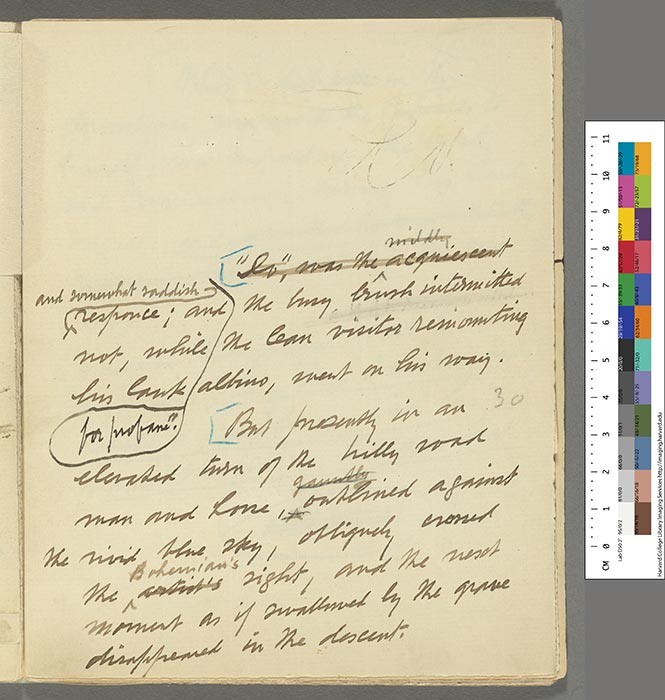 mildly
"So", was the acquiescent
and somewhat saddish
responce; and the busy brush intermitted
not, while the lean visitor remounting
his lank albino, went on his way.
30
But presently in an
elevated turn of the hilly road
gauntly
man and horse, outlined against
the vivid blue sky, obliquely crossed
Bohemian's
the artist's sight, and the next
moment as if swallowed by the grave
disappeared in the descent.
CM 0 1 2 3 4 5 6 7 8 9 10 11
Harvard College Library Imaging Services